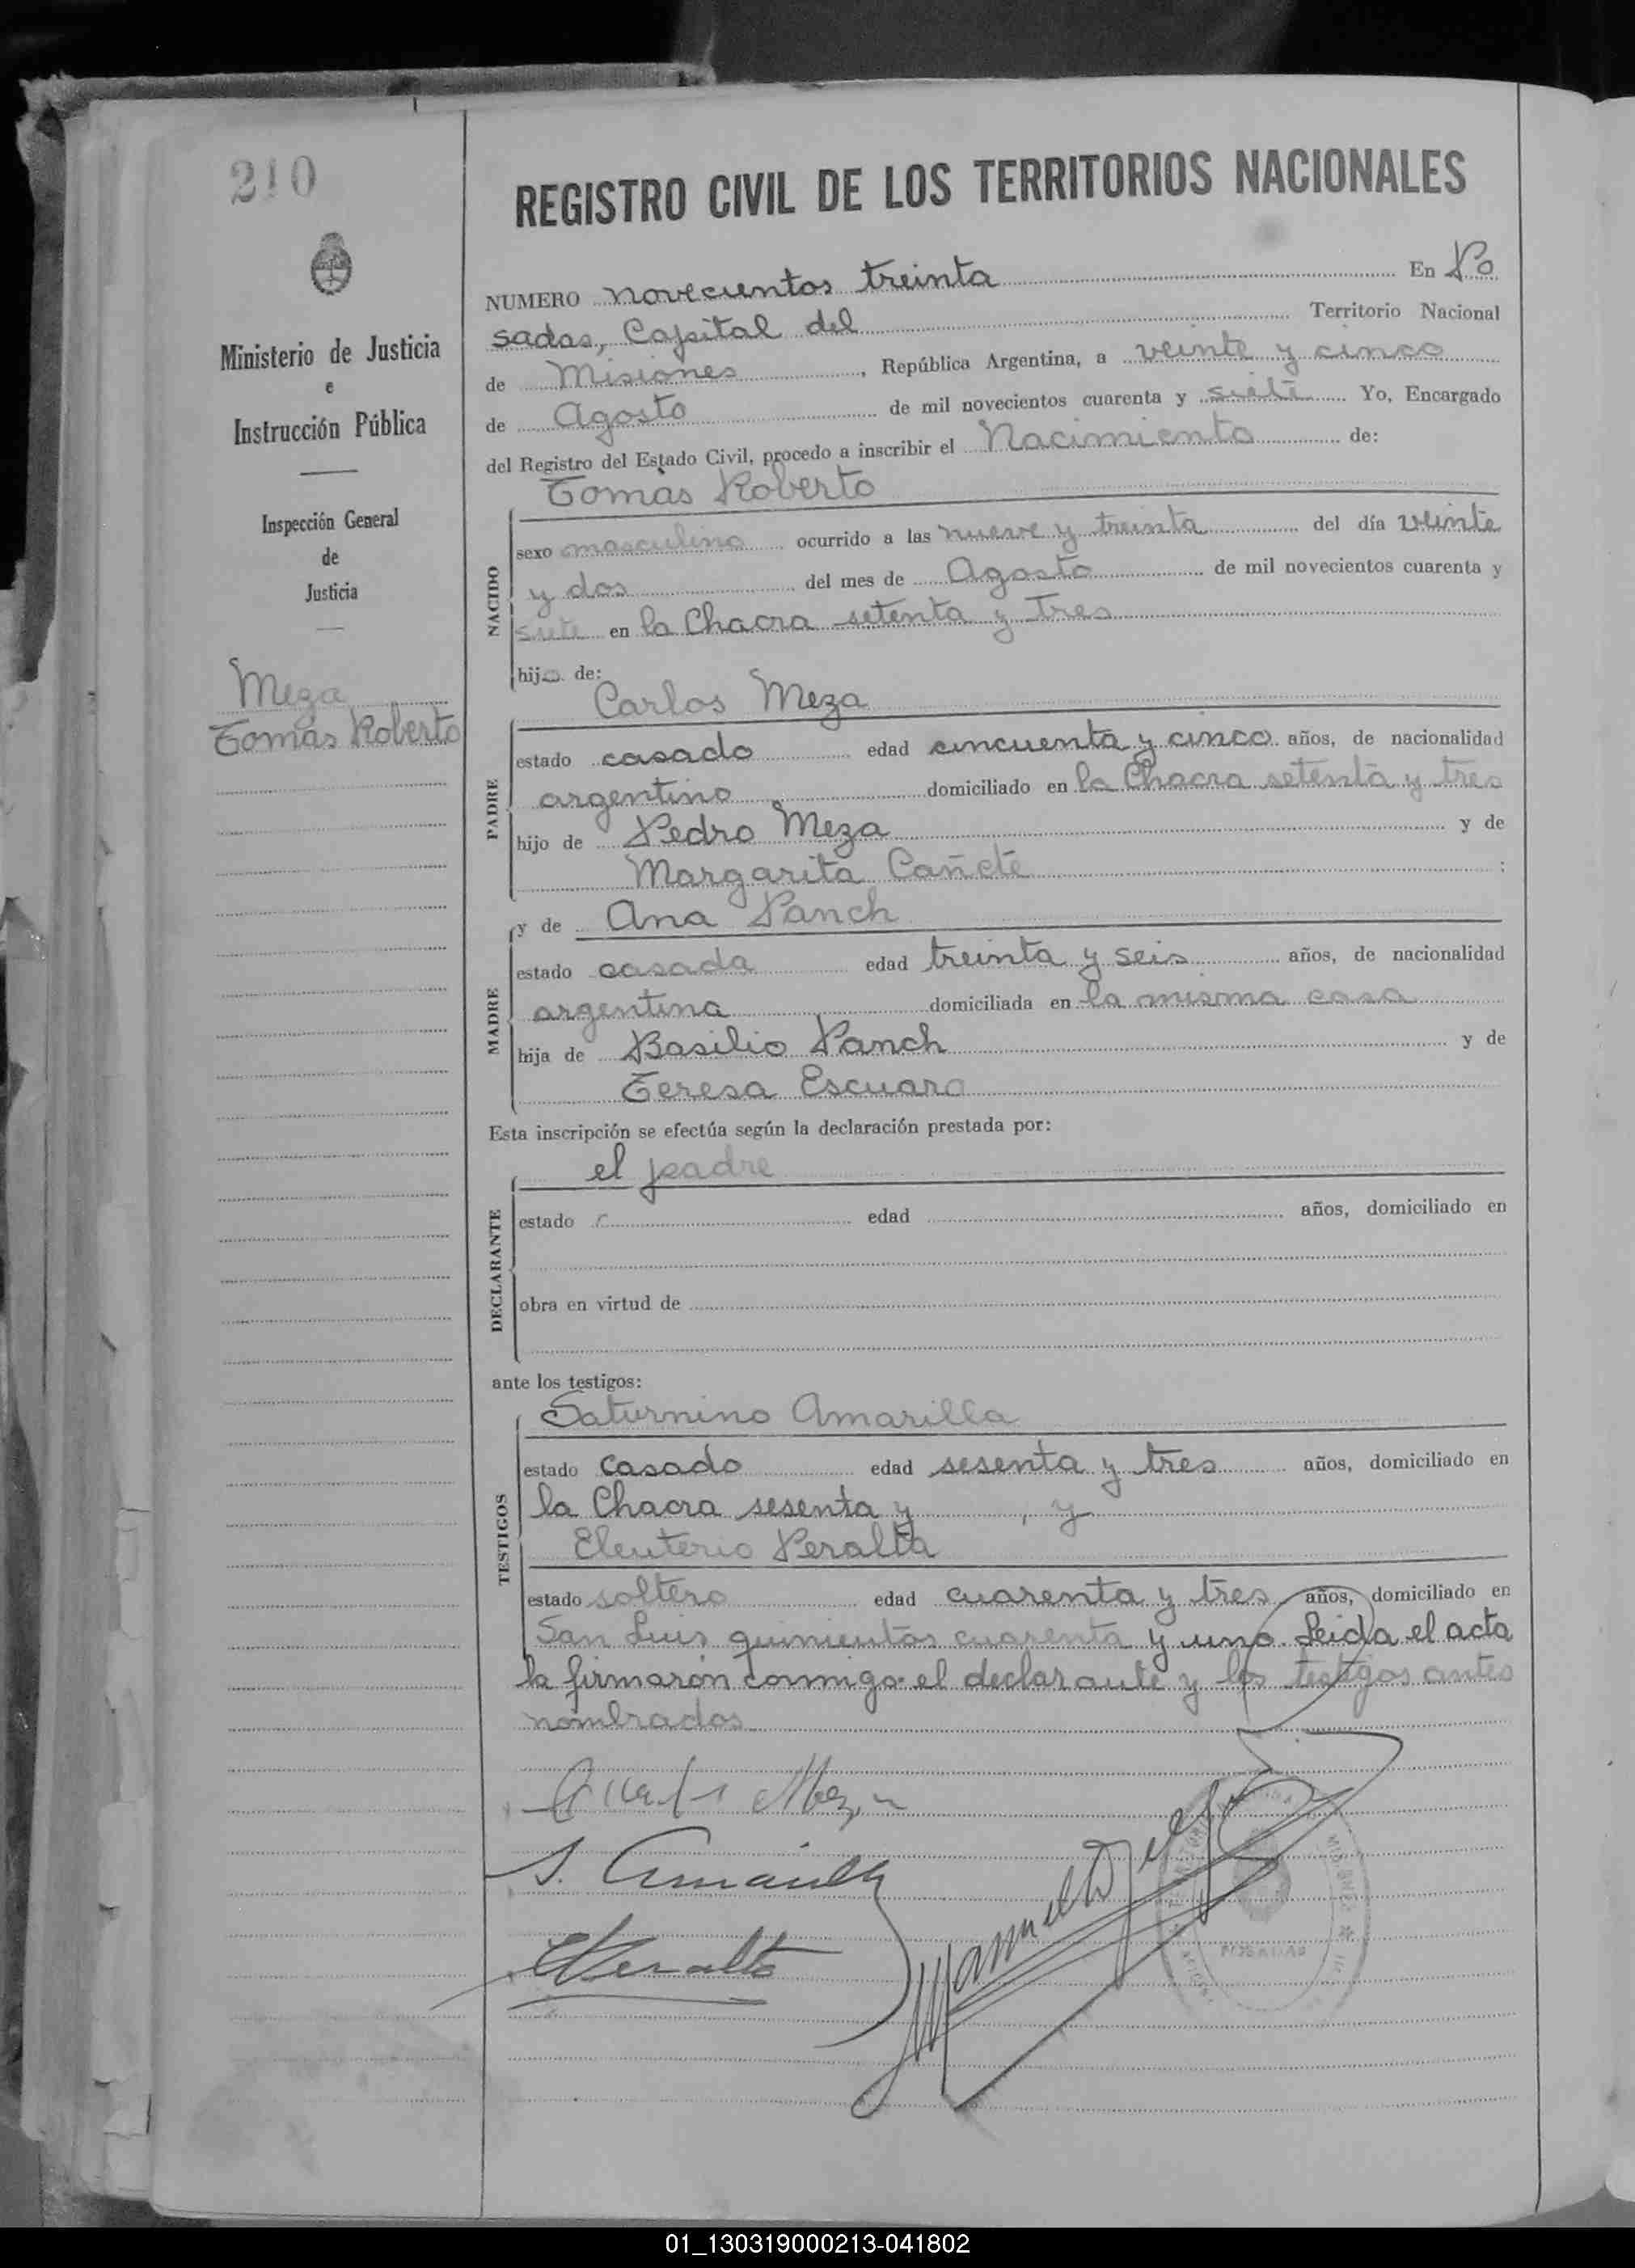 210
REGISTRO CIVIL DE LOS TERRITORIOS NACIONALES
Ministerio de Justicia
e
Instrucción Pública
Inspección General
de
Justicia
Meza
Tomás Roberto
NUMERO novecientos treinta En Po
sadas, Capital del Territorio Nacional
de Misiones, República Argentina, a veinte y cinco
de Agosto de mil novecientos cuarenta y siete Yo, Encargado
del Registro del Estado Civil, procedo a inscribir el Nacimiento de:
Tomás Roberto
NACIDO
sexo masculino ocurrido a las nueve y treinta del día veinte
y dos del mes de Agosto de mil novecientos cuarenta y
siete en la Chacra setenta y tres
hijo de:
Carlos Meza
PADRE
estado casado edad cincuenta y cinco años, de nacionalidad
argentino domiciliado en la Chacra setenta y tres
hijo de Pedro Meza y de
Margarita Cañete ;
y de Ana Panch
MADRE
estado casada edad treinta y seis años, de nacionalidad
argentina domiciliada en la misma casa
hija de Basilio Panch y de
Teresa Escuara
Esta inscripción se efectúa según la declaración prestada por:
el padre
DECLARANTE
estado edad años, domiciliado en
obra en virtud de
ante los testigos:
Saturnino Amarilla
TESTIGOS
estado casado edad sesenta y tres años, domiciliado en
la Chacra sesenta y , y
Eleuterio Peralta
estado soltero edad cuarenta y tres años, domiciliado en
San Luis quinientos cuarenta y uno. Leida el acta
la firmaron conmigo el declarante y los testigos antes
nombrados
Meza
S. Amarilla
EPeralta
Manuel D
MISIONES
POSADAS
01_130319000213-041802